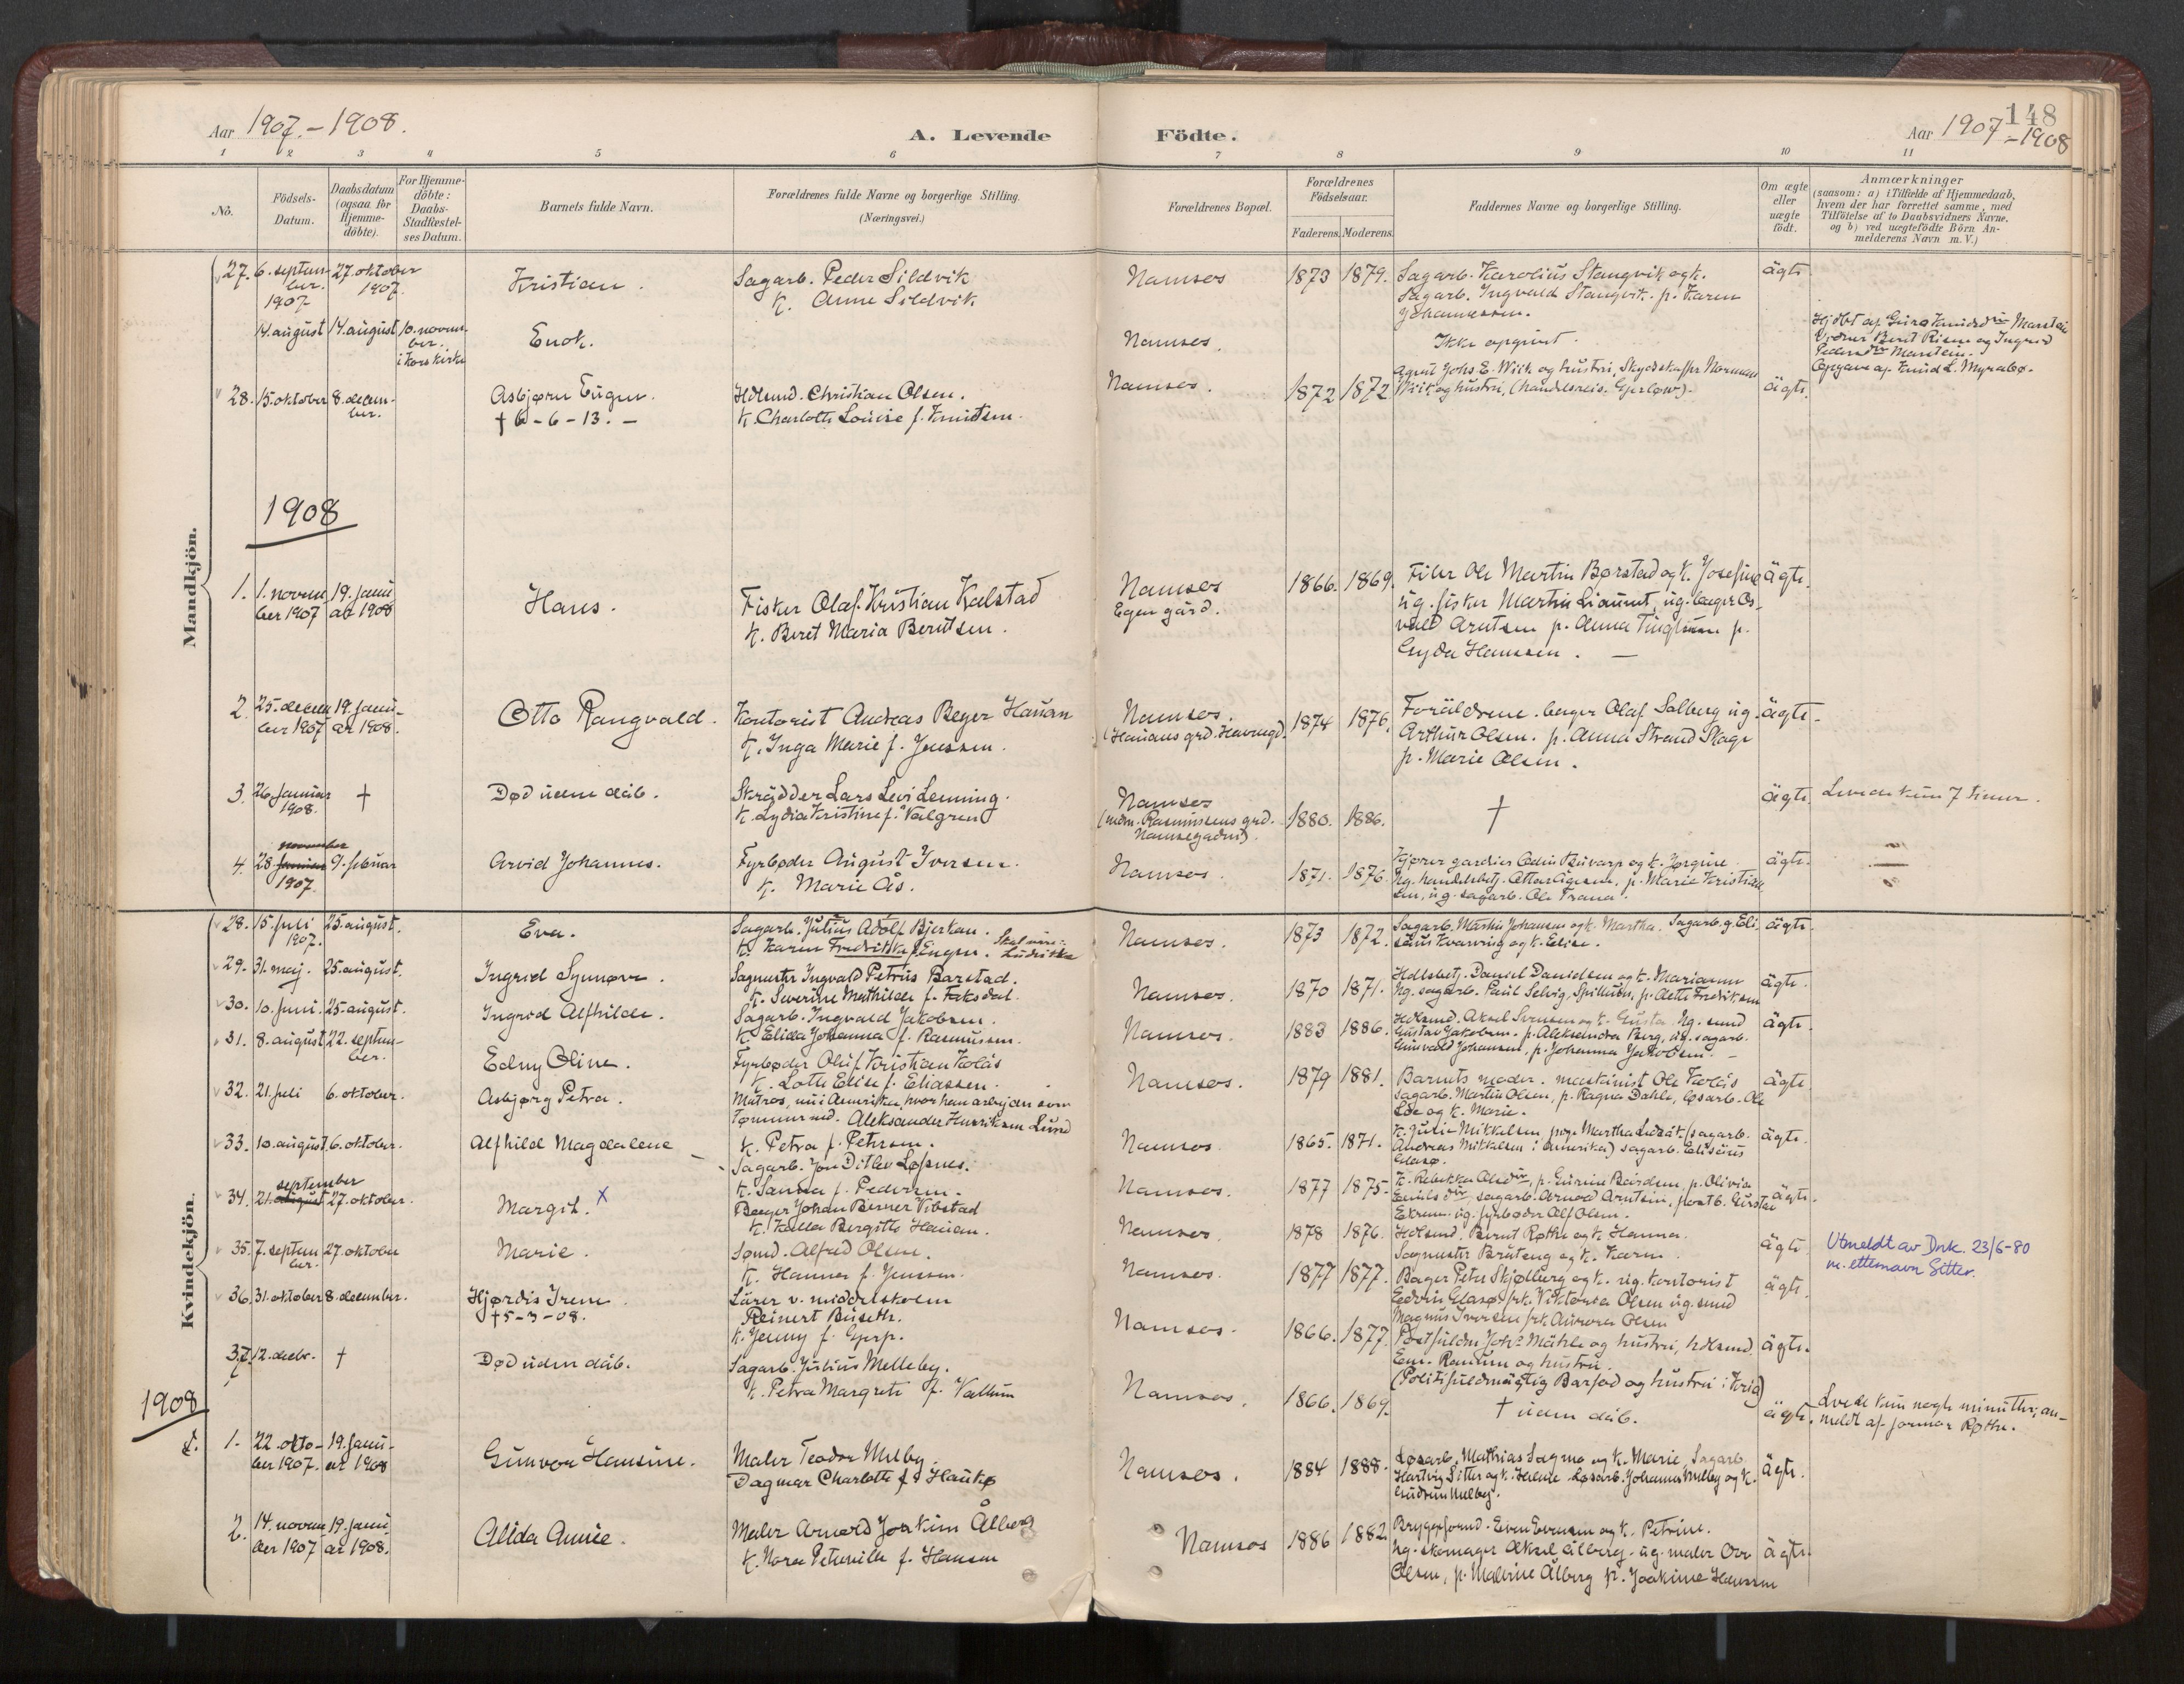 148
Aar 1907.-1908.
A. Levende Födte.
Aar 1907-1908
1 2 3 4 5 6 7 8 9 10 11
No.
Födsels-Datum.
Daabsdatum (ogsaa for Hjemme-döbte).
For Hjemme-döbte: Daabs-Stadfæstel-ses Datum.
Barnets fulde Navn.
Forældrenes fulde Navne og borgerlige Stilling. (Næringsvei.)
Forældrenes Bopæl.
Forældrenes Födselsaar.
Faderens. Moderens.
Faddernes Navne og borgerlige Stilling.
Om ægte eller uægte födt.
Anmærkninger
(saasom: a) i Tilfælde af Hjemmedaab,
hvem der har forrettet samme, med
Tilföielse af to Daabsvidners Navne.
og b) ved uægtefödte Börn An-
melderens Navn m.V.)
Mandkjön.
27. 6. septem-ber. 1907 27. oktober 1907. Kristian. Sagarb. Peder Sildvik
K. Anna Sildvik
Namsos 1873 1879. Sagarb. Karolius Stangvik og k.
Sagarb. Ingvald Stangvik. p. Karen
Johannessen.
ägte
14. august 14. august 10. novem-ber. i Kors kirke Enok. Namsos. Ikke opgivet.
Vidner Berit Risen og Ingrid
Opgave af Knud L. Myrabø.
28. 15. oktober 8. decem-ber. Asbjørn Eugen.
† 6-6-13. -
Hdlsmd. Christian Olsen.
K. Charlotte Louise f. Knudtsen.
Namsos. 1872 1872
Agent Johs E. Wiik og hustru,
Wiik og hustru,
ägte.
1908
1. 1. novem-ber 1907 19. janu-ar 1908 Hans. Fisker Olaf Kristian Kalstad
K. Beret Maria Berntsen.
Namsos
Egen gård.
1866. 1869. Filer Ole Martin Børstad og k. Josefine
ug. fisker Martin Liaunet, ug. bager Os-
vald Arntsen p. Anna p.
Gyda Hanssen. —
ägte.
2. 25. decem-ber 1907 19. janu-ar 1908. Otto Rangvald. Kontorist Andreas Beyer Hauan
K. Inga Marie f. Jenssen.
Namsos.
(Hauans grd. Havnegd.
1874 1876. Foräldrene. bager Olaf Salberg ug.
Arthur Olsen. p. Anna Strand Skage
p. Marie Olsen.
ägte.
3. 26. januar 1908. † Død uden dåb. Skrädder Lars Levi Lenning.
K. Lydia Kristine f. Valgren
Namsos
(mdm. Rasmussens grd.
Namsegaden).
1880. 1886. † ägte. Levede kun 7 timer.
4. 28. januar november 1907. 9. februar Arvid Johannes. Fyrbøder August Iversen.
K. Marie Ås.
Namsos. 1871. 1876.
p. Marie Kristian
sen, ug. sagarb. Ole Frana.
ägte.
Kvindekjön.
28. 15. juli 1907. 25. august. Eva. Sagarb. Julius Adolf Bjerkan.
K. Karen Fredrikka f. Engen. Skal være: Ludvikka
Namsos. 1873 1872. Sagarb. Martin Johansen og k. Martha. Sagarb. g. Eli-
säus Kvamring og k. Edise.
ägte.
29. 31. maj. 25. august. Ingrid Synnøve. Sagmester Ingvald Petrus Barstad.
K. Severine Mathilde f. Faksdal.
Namsos. 1870 1871. Hdlsbetj. Daniel Danielsen og k. Marianne
Ug. sagarb. Paul Selvig, Spillum, p. Alette Fredriksen
ägte.
30. 10. juni. 25. august. Ingrid Alfhilde. Sagarb. Ingvald Jakobsen.
K. Elida Johanna f. Rasmussen.
Namsos. 1883 1886. Hdlsmd. Aksel Svensen og k. Gusta. Ug. smed
Gustav Jakobsen. p. Aleksandra Berg, ug. sagarb.
Gunvald Johansen, p. Johanna Jakobsen. -
ägte.
31. 8. august 22. septem-ber. Edny Oline. Fyrbøder Oluf Kristian Kolås
K. Lotte Elise f. Eliassen.
Namsos. 1879 1881. Barnets moder. maskinist Ole Kolås
Sagarb. Martin Olsen, p. Ragna Dahle, løsarb. Ole
Løe og k. Marie.
ägte.
32. 21. juli 6. oktober. Asbjørg Petra. Matros, nu i Amerika, hvor han arbejder som
Tømmermd. Aleksander Henriksen Lund
K. Petra f. Petersen.
Namsos. 1865. 1871. K. Julie Mikkalsen, Martha (sagarb.
Andreas Mikkalsen i Amerika) sagarb. Elisäus
Glasø.
ägte.
33. 10. august 6. oktober. Alfhild Magdalene Sagarb. Jon Ditlev Løfsnes.
K. Sanna f. Pedersen.
Namsos. 1877 1875. K. Rebekka Olsdtr, p. Gurine Bardsen, p. Olivia
Emilsdtr sagarb. Arnold Arntsen,
Ekrem. ug. fyrbøder Alf Olsen.
ägte.
34. 21. august september 27. oktober. Margit. X Bager Johan Berner Vibstad
K. Kalla Bergitte Hauan.
Namsos. 1878 1876. Hdlsmd. Bernt Røthe og k. Hanna.
Sagmester og k. Karen.
ägte. Utmeldt av Dnk. 23/6-80
m. etternavn Sitter.
35. 7. septem-ber. 27. oktober Marie. Sømd. Alfred Olsen.
K. Hanna f. Jenssen.
Namsos. 1877 1877. Bager Peter Skjølberg og k. ug. kontorist
Edvin Glasø, frk. Viktoria Olsen ug. smed
Magnus Iversen frk. Aurora Olsen
ägte.
36. 31. oktober 8. december. Hjørdis Irene.
† 5-3-08.
Lärer v. middelskolen
Reinert Buseth.
K. Jenny f.
Namsos. 1866. 1877. Postfuldm. Johs Mæhle og hustru, hdlsmd.
Em. Ranum og hustru.
(Politifuldmægtig Barfod og hustru i Kria)
ägte.
37. 12. decbr. † Død uden dåb. Sagarb. Julius Melleby.
K. Petra Margrete f. Vallum
Namsos. 1866. 1869. † uden dåb. ägte. Levede kun nogle minutter; an-
meldt af jormor Røthe.
1908
1. 22. okto-ber 1907. 19. janu-ar 1908 Gunvor Hansine. Maler Teodor Melby.
Dagmar Charlotte f. Haukø
Namsos. 1884 1888. Løsarb. Mathias Sagmo og k. Marie, Sagarb.
Hartvig Sitter og k. Helene. Løsarb. Johannes Melby og k.
Gudrun Melby.
ägte.
2. 14. novem-ber 1907 19. janu-ar 1908. Alida Annie. Maler Arnold Joakim Ålberg
K. Nora Peternille f. Hansen
Namsos 1886 1882 Bryggeformd. Even Evensen og k. Petrine.
Ug. skomager Aksel Ålberg. ug. maler Ove
Olsen, p. Malvine Ålberg p. Joakime Hanssen
ägte.